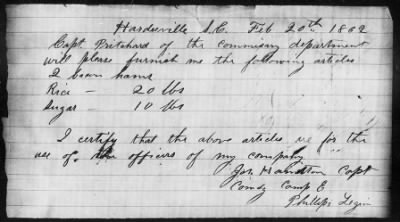 Hardeeville S.C. Feb 20th 1862
Capt. Pritchard of the commissary department
will please furnish me the following articles
2 bacon hams
Rice — 20 lbs
Sugar — 10 lbs
I certify that the above articles are for the
use of the officers of my company
Jos Hamilton Capt
Comdg Comp E
Phillips Legion